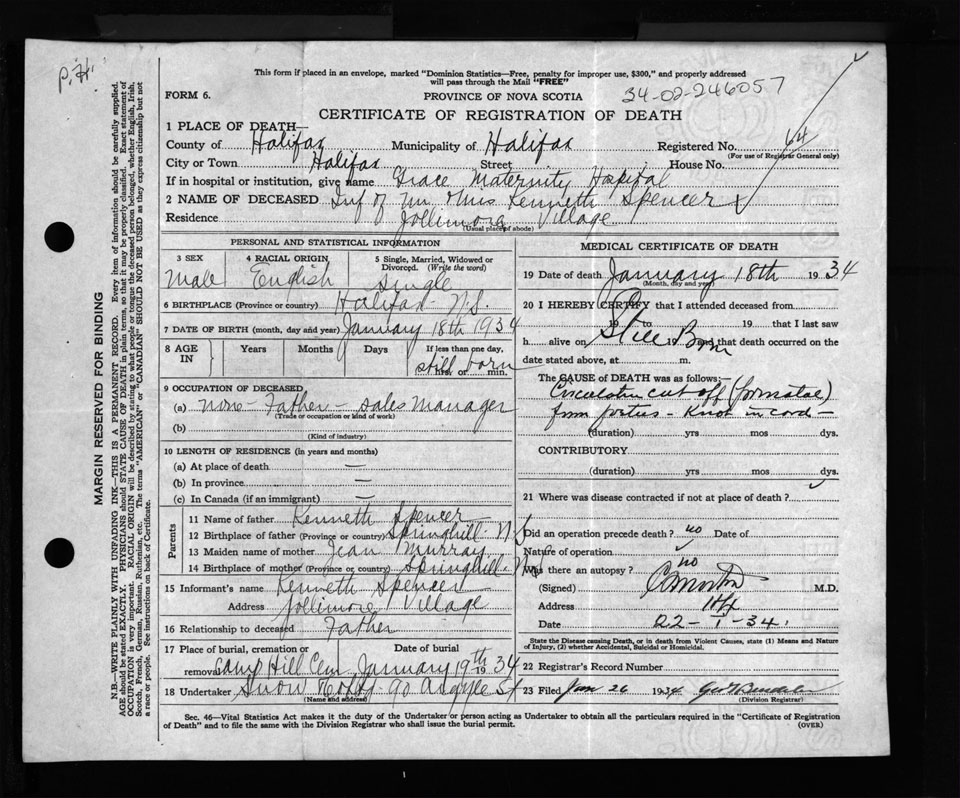 P.H.
This form if placed in an envelope, marked "Dominion Statistics—Free, penalty for improper use, $300," and properly addressed
will pass through the Mail "FREE"
FORM 6.
PROVINCE OF NOVA SCOTIA
34-02-246057
CERTIFICATE OF REGISTRATION OF DEATH
1 PLACE OF DEATH—
County of Halifax Municipality of Halifax Registered No. 64
(For use of Registrar General only)
City or Town Halifax Street House No.
If in hospital or institution, give name Grace Maternity Hospital
2 NAME OF DECEASED Inf of Mr & Mrs Kenneth Spencer
Residence Jollimore Village
(Usual place of abode)
PERSONAL AND STATISTICAL INFORMATION
3 SEX 4 RACIAL ORIGIN 5 Single, Married, Widowed or Divorced. (Write the word)
Male English Single
6 BIRTHPLACE (Province or country) Halifax N.S.
7 DATE OF BIRTH (month, day and year) January 18th 1934
8 AGE IN Years Months Days If less than one day, hrs. or min.
still born
9 OCCUPATION OF DECEASED
(a) None - Father - Sales Manager
(Trade or occupation or kind of work)
(b)
(Kind of industry)
10 LENGTH OF RESIDENCE (in years and months)
(a) At place of death —
(b) In province —
(c) In Canada (if an immigrant) —
Parents
11 Name of father Kenneth Spencer
12 Birthplace of father (Province or country) Springhill N.S
13 Maiden name of mother Jean Murray
14 Birthplace of mother (Province or country) Springhill N.S
15 Informant's name Kenneth Spencer
Address Jollimore Village
16 Relationship to deceased Father
17 Place of burial, cremation or removal Date of burial
Camp Hill Cem January 19th 1934
18 Undertaker Snow & Co 90 Argyle St
(Name and address)
MEDICAL CERTIFICATE OF DEATH
19 Date of death January 18th 1934
(Month, day and year)
20 I HEREBY CERTIFY that I attended deceased from
19 to 19 that I last saw
Still Born
h alive on 19 and that death occurred on the
date stated above, at m.
The CAUSE OF DEATH was as follows:—
Circulation cut off
from foetus - Knot in cord -
(duration) yrs mos dys.
CONTRIBUTORY
(duration) yrs mos dys.
21 Where was disease contracted if not at place of death?
Did an operation precede death? no Date of
Nature of operation
Was there an autopsy? no
(Signed) M.D.
Address Hfx
Date 22-I-34
State the Disease causing Death, or in death from Violent Causes, state (1) Means and Nature
of Injury, (2) whether Accidental, Suicidal or Homicidal.
22 Registrar's Record Number
23 Filed Jan 26 1934
(Division Registrar)
Sec. 46—Vital Statistics Act makes it the duty of the Undertaker or person acting as Undertaker to obtain all the particulars required in the "Certificate of Registration
of Death" and to file the same with the Division Registrar who shall issue the burial permit.
(OVER)
MARGIN RESERVED FOR BINDING
N.B.—WRITE PLAINLY WITH UNFADING INK—THIS IS A PERMANENT RECORD. Every item of information should be carefully supplied.
AGE should be stated EXACTLY. PHYSICIANS should STATE CAUSE OF DEATH in plain terms, so that it may be properly classified. Exact statement of
OCCUPATION is very important. RACIAL ORIGIN will be described by stating to what people or tongue the deceased person belonged, whether English, Irish,
Scotch, French, German, Russian, Ruthenian, etc. The terms "AMERICAN" or "CANADIAN" SHOULD NOT BE USED as they express citizenship but not
a race or people. See instructions on back of Certificate.